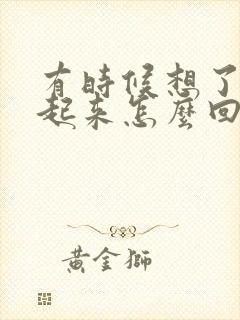 有時候想了
起來怎麼回
黃金獅